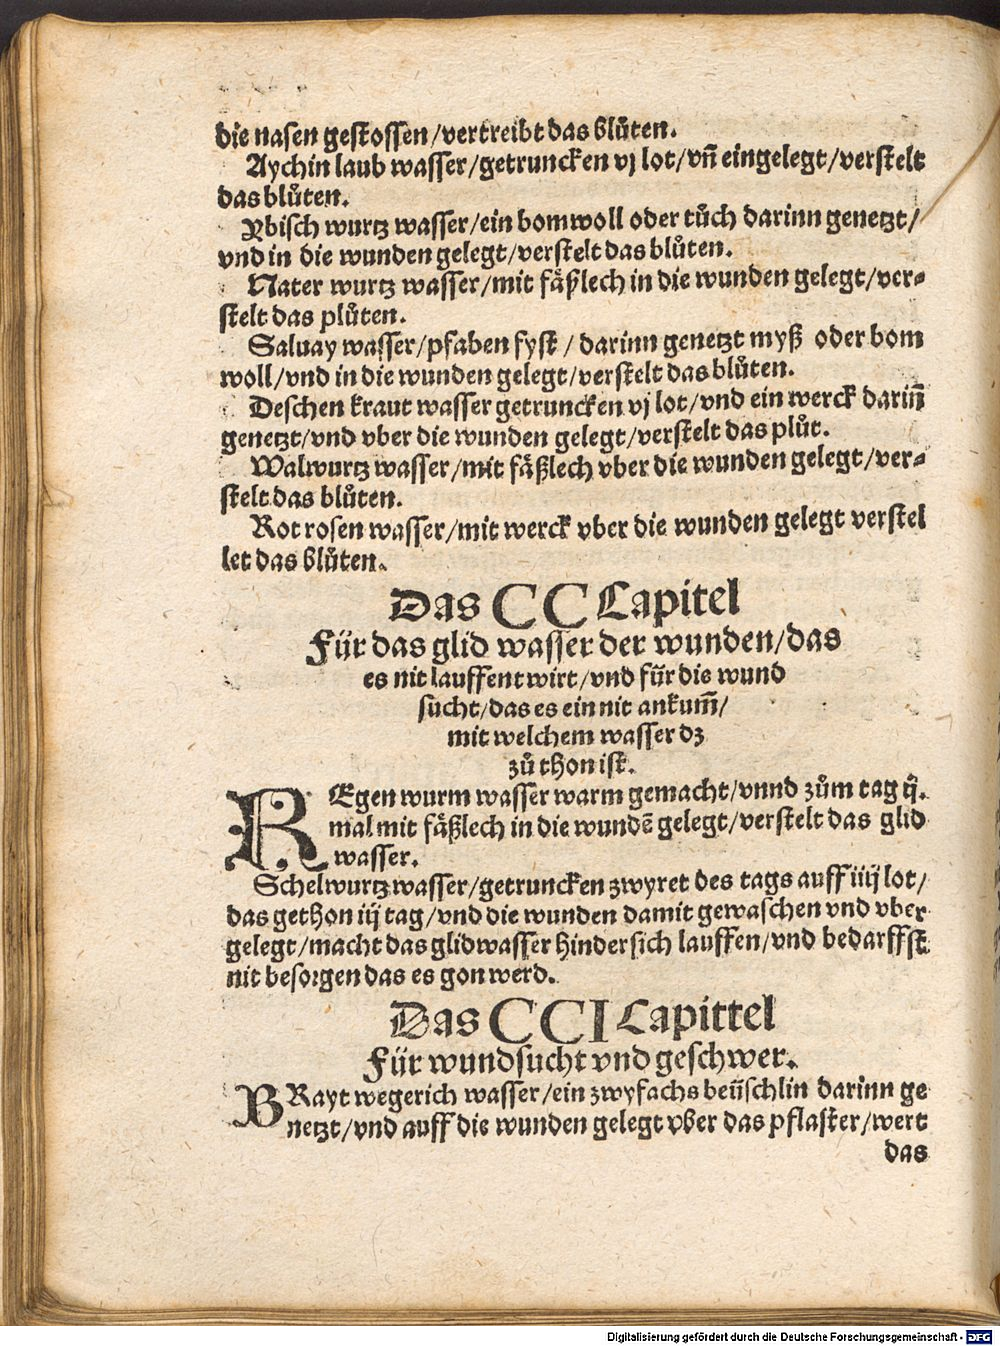 die nasen gestossen/vertreibt das blůten.
Aychin laub wasser/getruncken vj lot/vñ eingelegt/verstelt
das blůten.
Ybisch wurtz wasser/ein bomwoll oder tůch darinn genetzt/
vnd in die wunden gelegt/verstelt das blůten.
Nater wurtz wasser/mit fäßlech in die wunden gelegt/ver-
stelt das plůten.
Saluay wasser/pfaben fyst/ darinn genetzt myß oder bom
woll/vnd in die wunden gelegt/verstelt das blůten.
Deschen kraut wasser getruncken vj lot/vnd ein werck darin̄
genetzt/vnd vber die wunden gelegt/verstelt das plůt.
Walwurtz wasser/mit fäßlech vber die wunden gelegt/ver-
stelt das blůten.
Rot rosen wasser/mit werck vber die wunden gelegt verstel
let das blůten.
Das CC Capitel
Für das glid wasser der wunden/das
es nit lauffent wirt/vnd für die wund
sucht/das es ein nit ankum̄/
mit welchem wasser dz
zů thon ist.
REgen wurm wasser warm gemacht/vnnd zům tag ij.
mal mit fäßlech in die wundē gelegt/verstelt das glid
wasser.
Schelwurtz wasser/getruncken zwyret des tags auff iiij lot/
das gethon iij tag/vnd die wunden damit gewaschen vnd vber
gelegt/macht das glidwasser hindersich lauffen/vnd bedarffst
nit besorgen das es gon werd.
Das CCI Capittel
Für wundsucht vnd geschwer.
BRayt wegerich wasser/ein zwyfachs beüschlin darinn ge
netzt/vnd auff die wunden gelegt vber das pflaster/wert
das
Digitalisierung gefördert durch die Deutsche Forschungsgemeinschaft - DFG